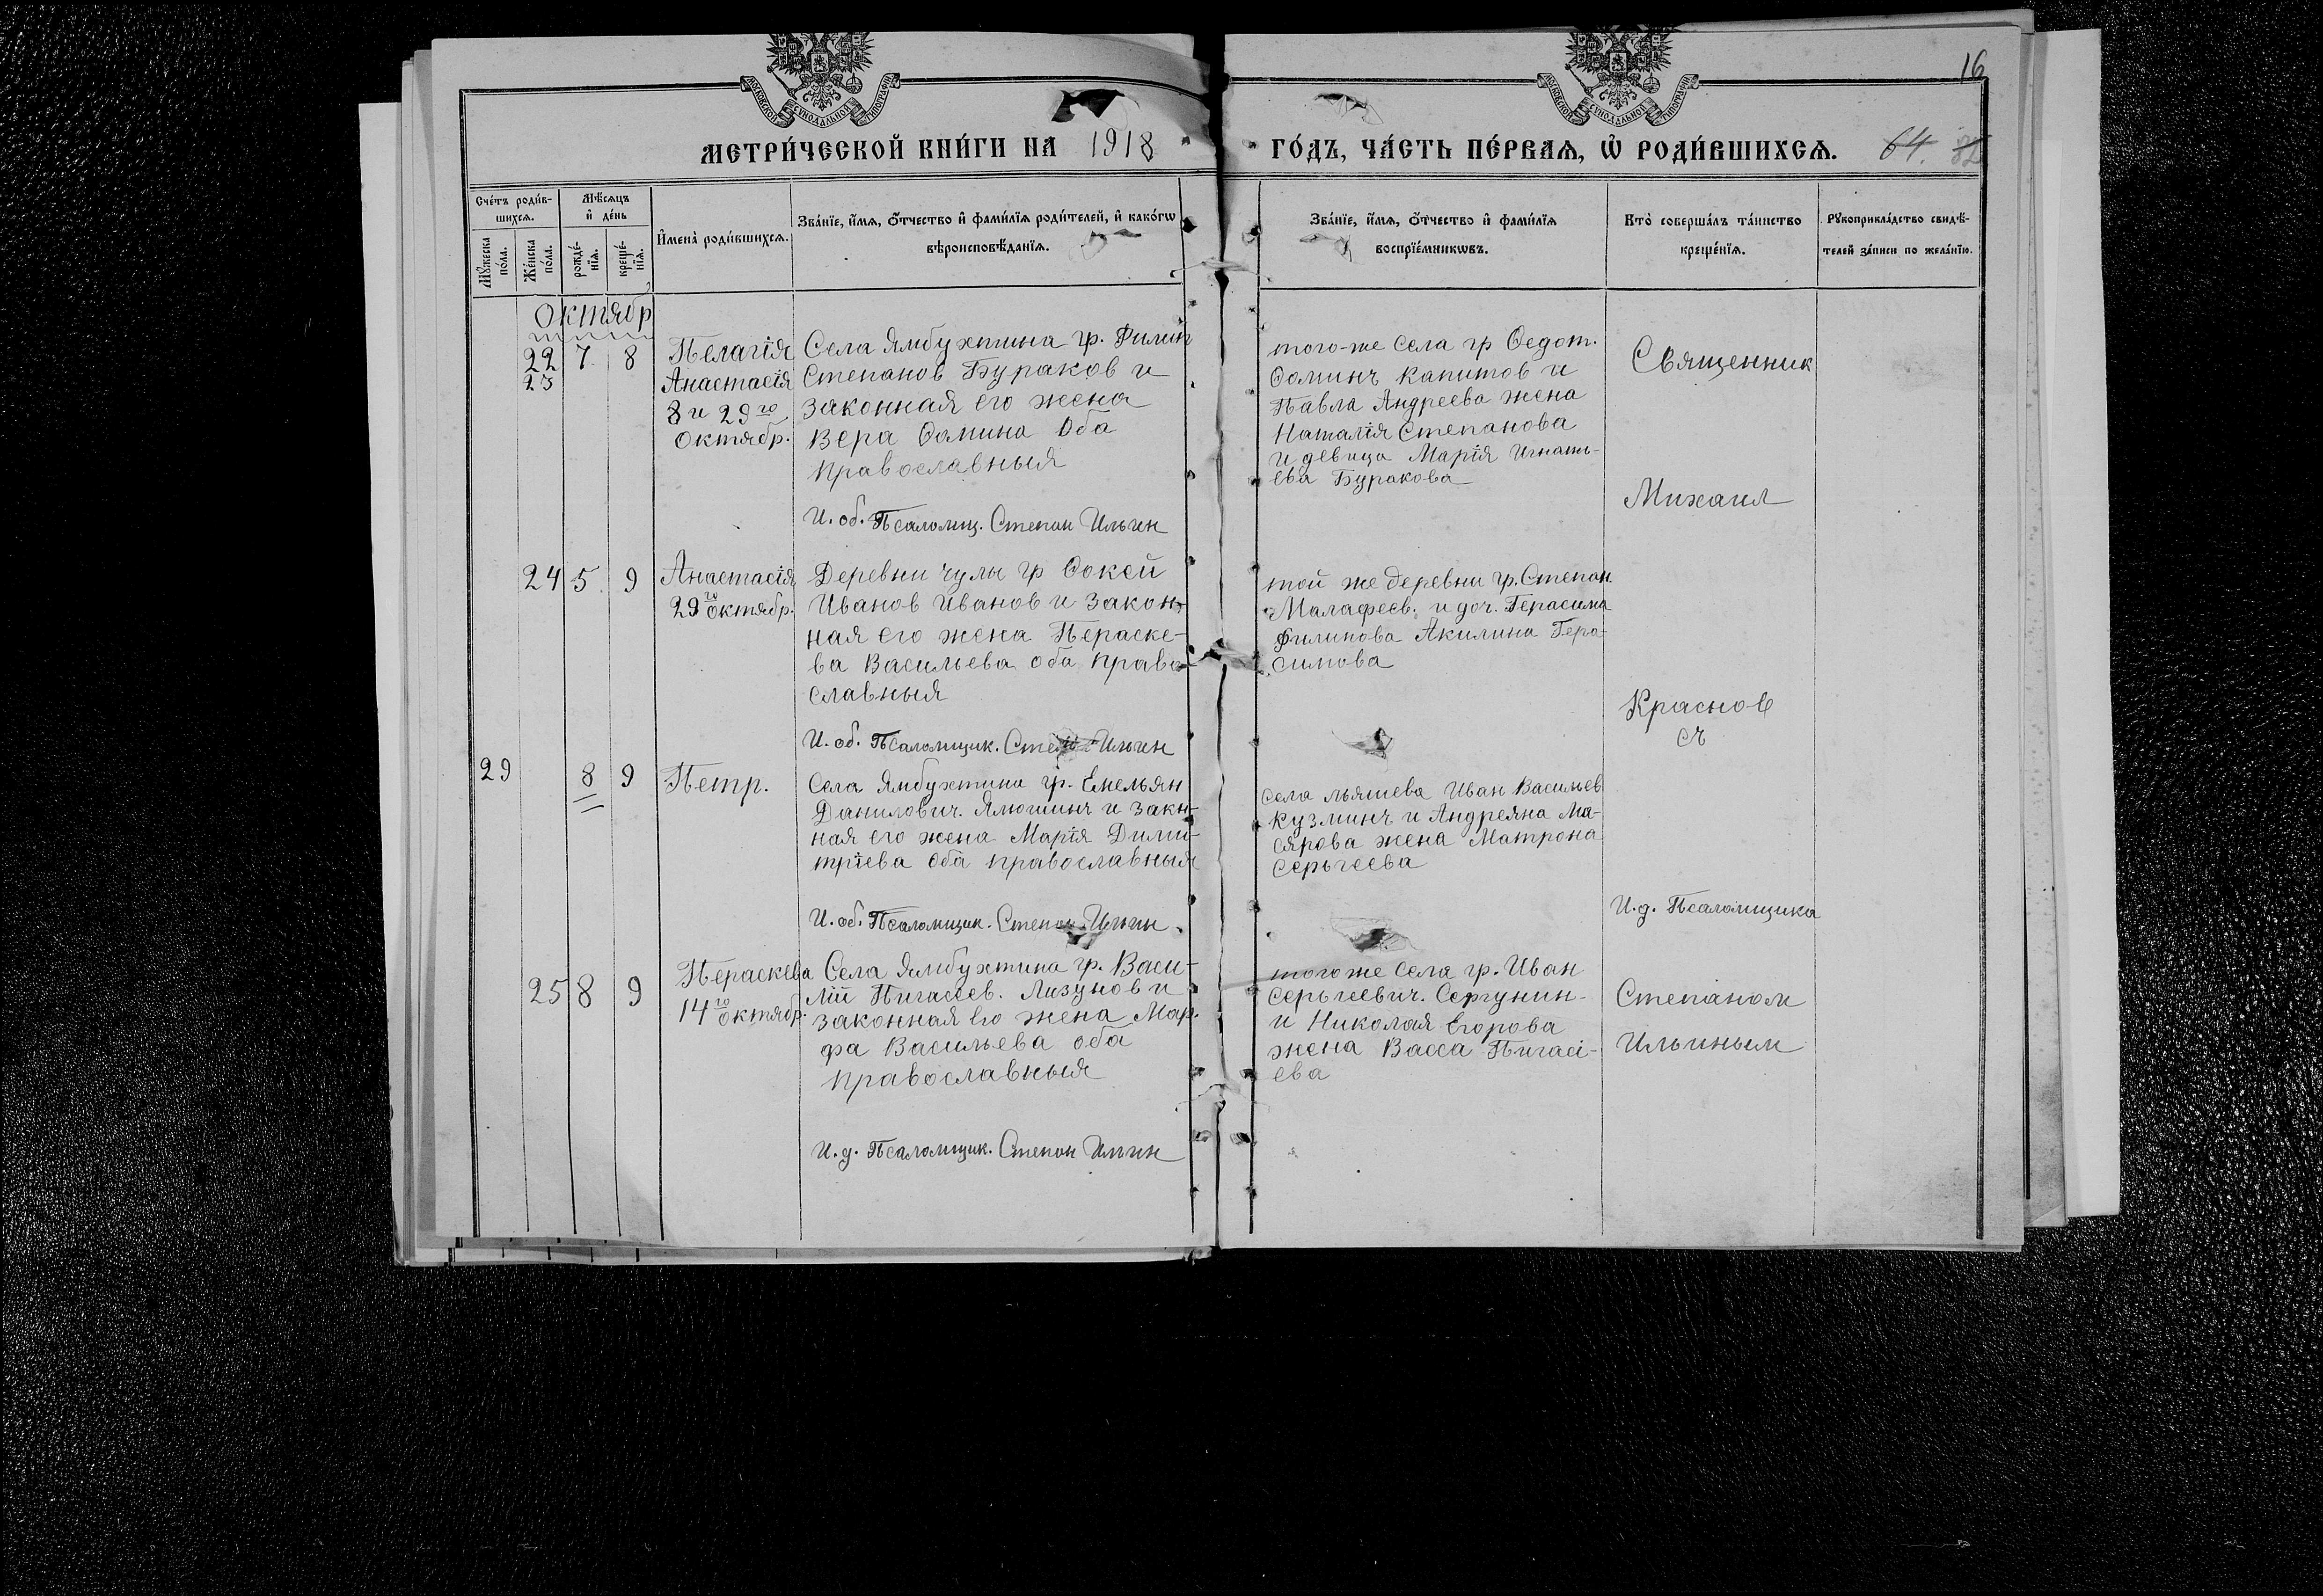 16
МОСКОВСКОЙ СУНОДАЛЬНОЙ ТИПОГРАФІИ
МОСКОВСКОЙ СУНОДАЛЬНОЙ ТИПОГРАФІИ
МЕТРИ́ЧЕСКОЙ КНИ́ГИ НА 1918
ГО́ДЪ, ЧА́СТЬ ПЕ́РВАѦ, Ѡ РОДИ́ВШИХСѦ. 64.
Сче́тъ роди́в-
шихсѧ.
Мѣ́сѧцъ
и҆ де́нь
Мꙋ́жеска
по́ла.
Же́нска
по́ла.
рожде́-
нїѧ.
креще́-
нїѧ.
И҆мена̀ роди́вшихсѧ.
Зва́нїе, и҆́мѧ, ѻ҆́тчество и҆ фами́лїѧ роди́телей, и҆ како́гѡ
вѣроисповѣ́данїѧ.
Зва́нїе, и҆́мѧ, ѻ҆́тчество и҆ фами́лїѧ
воспрїе́мникѡвъ.
Кто̀ соверша́лъ та́инство
креще́нїѧ.
Рꙋкоприкла́дство свидѣ́-
телей за́писи по жела́нїю.
Октябр
22 7 8
23
Пелагія
Анастасія
8 и 29го
Октябр.
Села Ямбухтина гр. Филип
Степанов Бураков и
законная его жена
Вера Ѳомина Оба
православныя
И. об. Псаломщ. Степан Ильин
того-же села гр Ѳедот.
Ѳоминъ Капитов и
Павла Андреева жена
Наталія Степанова
и девица Марія Игнать-
ева Буракова
24 5 9
Анастасія
29го октябр.
Деревни Чулы гр Ѳокей
Иванов Иванов и закон-
ная его жена Пераске-
ва Васильева оба право-
славныя
И. об. Псаломщик. Ильин
той же деревни гр. Степан
Малафеев. и доч. Герасима
Филипова Акилина Гера-
симова
29 8 9
Петр.
Села Ямбухтина гр. Емельян
Данилович. Ялюшинъ и закн-
ная его жена Марія Дими-
тріева оба православныя
И. об. Псаломщик. Степан Ильин
села Льяшева Иван Васильев
Кузминъ и Андреяна Ма-
сярова жена Матрона
Серьгеева
25 8 9
Пераскева
14го октябр.
Села Ямбухтина гр. Васи-
лій Пигасеев. Лизунов и
законная его жена Мар-
фа Васильева оба
православныя
И. д. Псаломщик. Степан Ильин
тогоже села гр. Иван
Серьгеевич. Сергунин-
и Николая Егорова
жена Васса Пигасі-
ева
Священник
Михаил
Краснов
съ
И. д. Псаломщика
Степаном
Ильиным